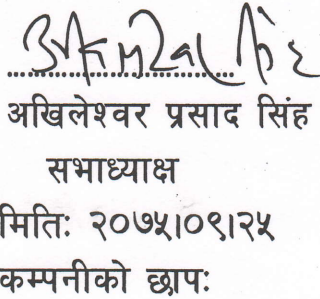 अखिलेश्वर प्रसाद सिंह
सभाध्याक्ष
मितिः २०७५।०९।२५
कम्पनीको छापः